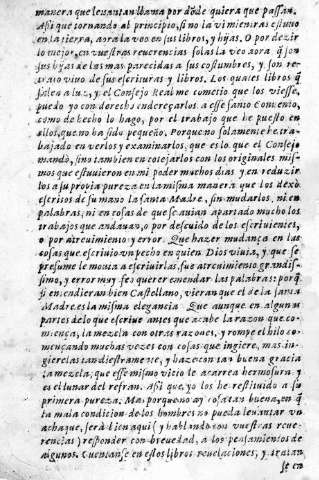 manera que leuantan llama por dõde quiera que passan.
Assi que tornando al principio, si no la vi mientras estuuo
en la tierra, aora la veo en sus libros, y hijas. O por dezir
lo mejor, en vuestras reuerencias solas la veo aora q̃ son
sus hijas de las mas parecidas a sus costumbres, y son re-
trato viuo de sus escrituras y libros. Los quales libros q̃
salen a luz, y el Consejo Real me cometio que los viesse,
puedo yo con derecho endereçarlos a esse santo Conuento,
como de hecho lo hago, por el trabajo que he puesto en
ellos, que no ha sido pequeño. Porque no solamente he tra-
bajado en verlos y examinarlos, que es lo que el Consejo
mandò, sino tambien en cotejarlos con los originales mis-
mos que estuuieron en mi poder muchos dias y en reduzir
los a su propia pureza en la misma manera que los dexò
escritos de su mano la santa Madre, sin mudarlos, ni en
palabras, ni en cosas de que se auian apartado mucho los
trabajos que andauan, o por descuido de los escriuientes,
o por atreuimiento y error. Que hazer mudança en las
cosas que escriuio vn pecho en quien Dios viuia, y que se
presume le mouia a escriuirlas, fue atreuimiento grandis-
simo, y error muy feo querer emendar las palabras: porq̃
si entendieran bien Castellano, vieran que el de la santa
Madre es la misma elegancia. Que aunque en algunas
partes de lo que escriue antes que acabe la razon que co-
mença, la mezcla con otras razones, y rompe el hilo co-
mençando muchas vezes con cosas que ingiere, mas in-
gierelas tan diestramente, y haze con tan buena gracia
la mezcla, que esse mismo vicio le acarrea hermosura y
es el lunar del refran. Assi que yo los he restituido a su
primera pureza. Mas porque no ay cosa tan buena, en q̃
la mala condicion de los hombres no pueda leuantar vn
achaque, serà bien aqui (y hablando con vuestras reue-
rencias) responder con breuedad, a los pensamientos de
algunos. Cuentanse en estos libros reuelaciones, y tratan
se en